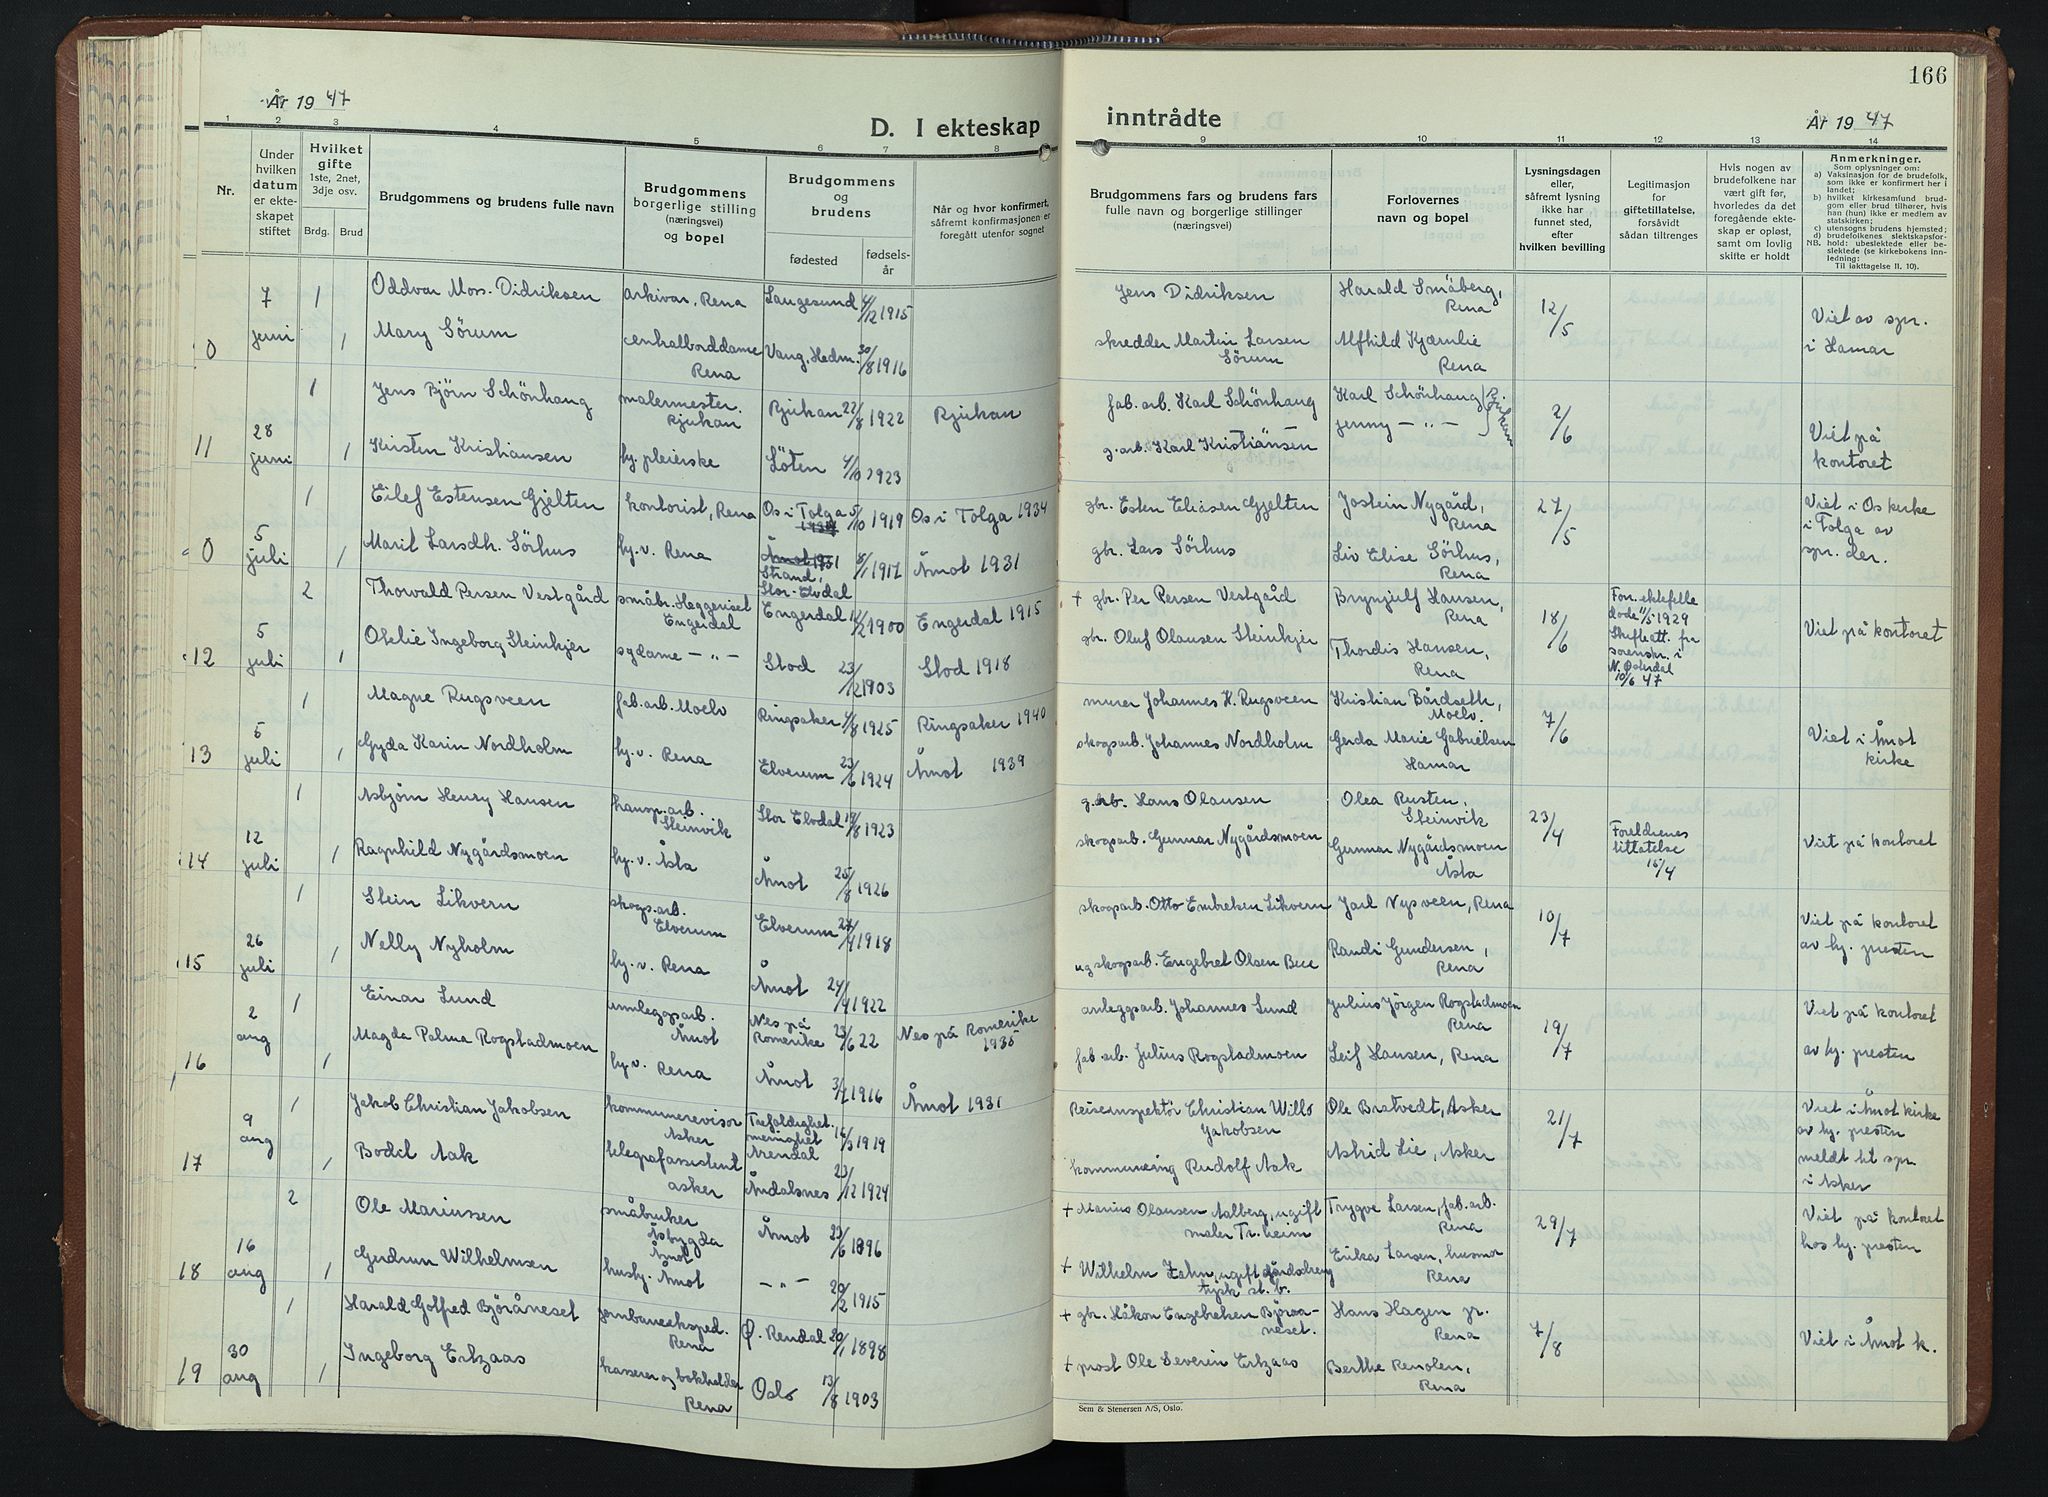 166
År 1947
D. I ekteskap
inntrådte
År 1947
1 2 3 4 5 6 7 8 9 10 11 12 13 14
Nr.
Under hvilken datum er ekteskapet stiftet
Hvilket gifte
1ste, 2net, 3dje osv.
Brdg. Brud
Brudgommens og brudens fulle navn
Brudgommens borgerlige stilling (næringsvei) og bopel
Brudgommens og brudens
fødested
fødselsår
Når og hvor konfirmert, såfremt konfirmasjonen er foregått utenfor sognet
Brudgommens fars og brudens fars fulle navn og borgerlige stillinger (næringsvei)
Forlovernes navn og bopel
Lysningsdagen eller, såfremt lysning ikke har funnet sted, efter hvilken bevilling
Legitimasjon for giftetillatelse, forsåvidt sådan tiltrenges
Hvis nogen av brudefolkene har vært gift før, hvorledes da det foregående ekteskap er opløst, samt om lovlig skifte er holdt
Anmerkninger.
Som oplysninger om:
a) Vaksinasjon for de brudefolk, som ikke er konfirmert her i landet;
b) hvilket kirkesamfund brudgom eller brud tilhører, hvis han (hun) ikke er medlem av statskirken;
c) utensogns brudens hjemsted;
d) brudefolkenes slektskapsforhold: ubeslektede eller beslektede (se kirkebokens innledning:
NB.
Til iakttagelse II. 10).
0 7 juni 1 Oddvar Moss-Didriksen arkivar, Rena Langesund 4/12 1915 Jens Didriksen Harald Småberg, Rena 12/5 Viet av spr. i Hamar
1 Mary Sörum centralborddame Rena Vang, Hedm. 30/8 1916 skredder Martin Larsen Sörum Alfhild Kjærnlie Rena
11 28 juni 1 Jens Bjørn Schönhaug malermester. Rjukan Rjukan 22/8 1922 Rjukan fab. arb. Karl Schönhaug Karl Schönhaug Rjukan 2/6 Viet på kontoret
1 Kirsten Kristiansen sy. pleierske Löten 4/10 1923 g. arb. Karl Kristiansen Jenny — „ —
0 5 juli 1 Eilef Estensen Gjelten kontorist, Rena Os i Tolga 5/10 1919 Os i Tolga 1934 gbr. Esten Eliasen Gjelten Jostein Nygård, Rena 27/5 Viet i Os kirke i Tolga av spr. der.
1 Marit Larsdh. Sörhus hj. v. Rena Åmot 1931 Strand, Stor-Elvdal 8/1 1917 Åmot 1931 gbr. Lars Sörhus Liv Elise Sörhus, Rena
12 5 juli 2 Thorvald Persen Vestgård småbr. Heggeriset Engerdal Engerdal 12/2 1900 Engerdal 1915 + gbr. Per Persen Vestgård Brynjulf Hansen, Rena 18/6 For. ektefelle døde 11/5 1929 Skifteatt. fra sorenskr. i N. Østerdal 10/6 47 Viet på kontoret
1 Otelie Ingeborg Steinkjer sydame — „ — Stod 23/12 1903 Stod 1918 gbr. Oluf Olausen Steinkjer Thordis Hansen, Rena
13 5 juli 1 Magne Rugsveen fab. arb. Moelv Ringsaker 4/8 1925 Ringsaker 1940 murer Johannes H. Rugsveen Kristian Bårdseth, Moelv. 7/6 Viet i Åmot kirke
1 Gyda Karin Nordholm hj. v. Rena Elverum 23/6 1924 Åmot 1939 skogsarb. Johannes Nordholm Gerda Marie Gabrielsen Hamar
14 12 juli 1 Asbjørn Henry Hansen transp. arb. Steinvik Stor Elvdal 19/8 1923 g. arb. Hans Olausen Olea Rusten, Steinvik 23/4 Foreldrenes tillatelse 15/4 Viet på kontoret
1 Ragnhild Nygårdsmoen hj. v. Åsta Åmot 25/8 1926 skogsarb. Gunnar Nygårdsmoen Gunnar Nygårdsmoen Åsta
15 26 juli 1 Stein Likvern skogs. arb. Elverum Elverum 27/4 1918 skogsarb. Otto Embretsen Likvern Jarl Nysveen, Rena 10/7 Viet på kontoret av hj. presten
1 Nelly Nyholm hj. v. Rena Åmot 24/4 1922 skogsarb. Engebret Olsen Randi Gundersen, Rena
16 2 aug 1 Einar Lund anleggsarb. Åmot Nes på Romerike 23/6 22 Nes på Romerike anleggsarb. Johannes Lund Julius Jörgen Rogstadmoen Rena 19/7 Viet på kontoret av hj. presten
1 Magda Palma Rogstadmoen hj. v. Rena Åmot 1916 Åmot 1931 fab arb. Julius Rogstadmoen Leif Hansen, Rena
17 9 aug 1 Jakob Christian Jakobsen kommunerevisor Asker Trefoldighet menighet Arendal 16/3 1919 Reiseinspektör Christian Wills Jakobsen Ole Bratvedt, Asker 21/7 Viet i Åmot kirke av hj. presten meldt til spr. i Asker
1 Bodil Aak telegrafassistent asker Åndalsnes 23/12 1924 kommuneing Rudolf Aak Astrid Lie, Asker
18 16 aug 2 Ole Mariussen småbruker Åsbygda Åmot Åmot 23/6 1896 + Marius Olausen Aalberg, ugift maler Tr.heim Trygve Larsen, fab. arb. Rena 29/7 Viet på kontoret hos hj. presten
1 Gudrun Wilhelmsen husby. Åmot — „ — 20/2 1915 + Wilhelm Zahn, ugift gårdsdreng tysk st. b. Erika Larsen, husmor Rena
19 30 aug 1 Harald Gotfred Björåneset jernbaneeksped. Rena Ø. Rendal 20/1 1898 + gbr. Håkon Engebretsen Björaaneset. Hans Hagen jr. Rena 7/8 Viet i Åmot k.
1 Ingeborg Ertzaas kasserer og bokholder Rena Oslo 13/8 1903 + prost Ole Severin Ertzaas Berthe Renolen, Rena
Sem & Stenersen A/S, Oslo.